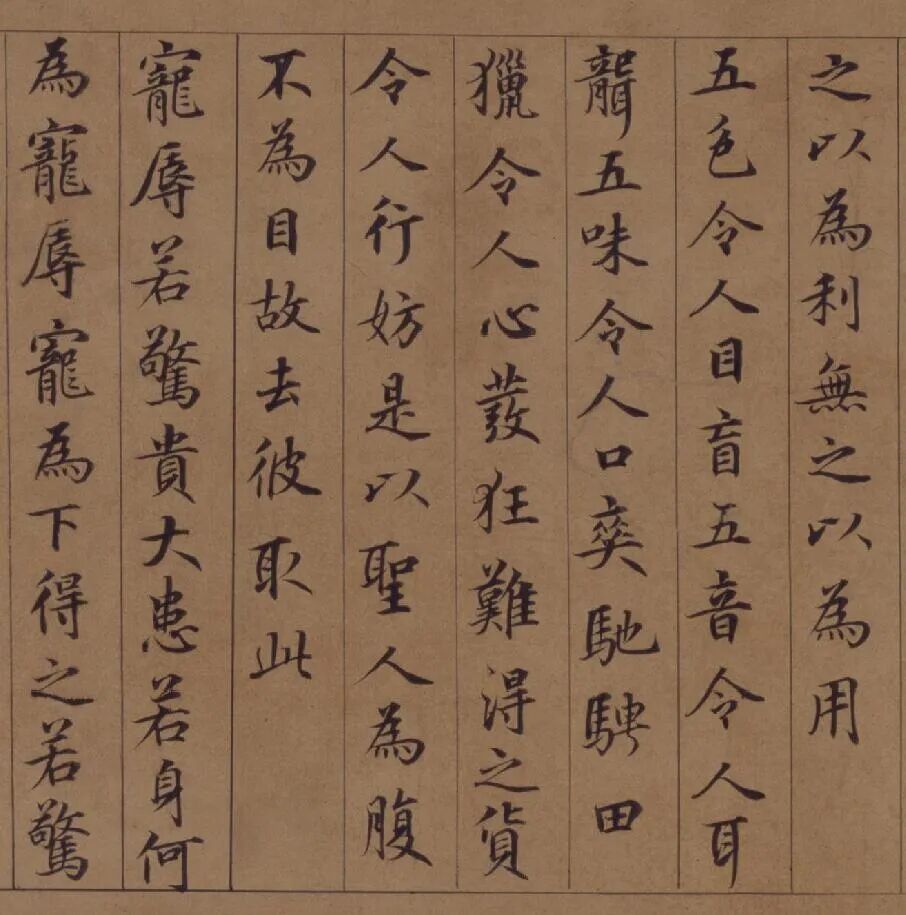 之以為利無之以為用
五色令人目盲五音令人耳
聾五味令人口爽馳騁田
獵令人心發狂難得之貨
令人行妨是以聖人為腹
不為目故去彼取此
寵辱若驚貴大患若身何
為寵辱寵為下得之若驚